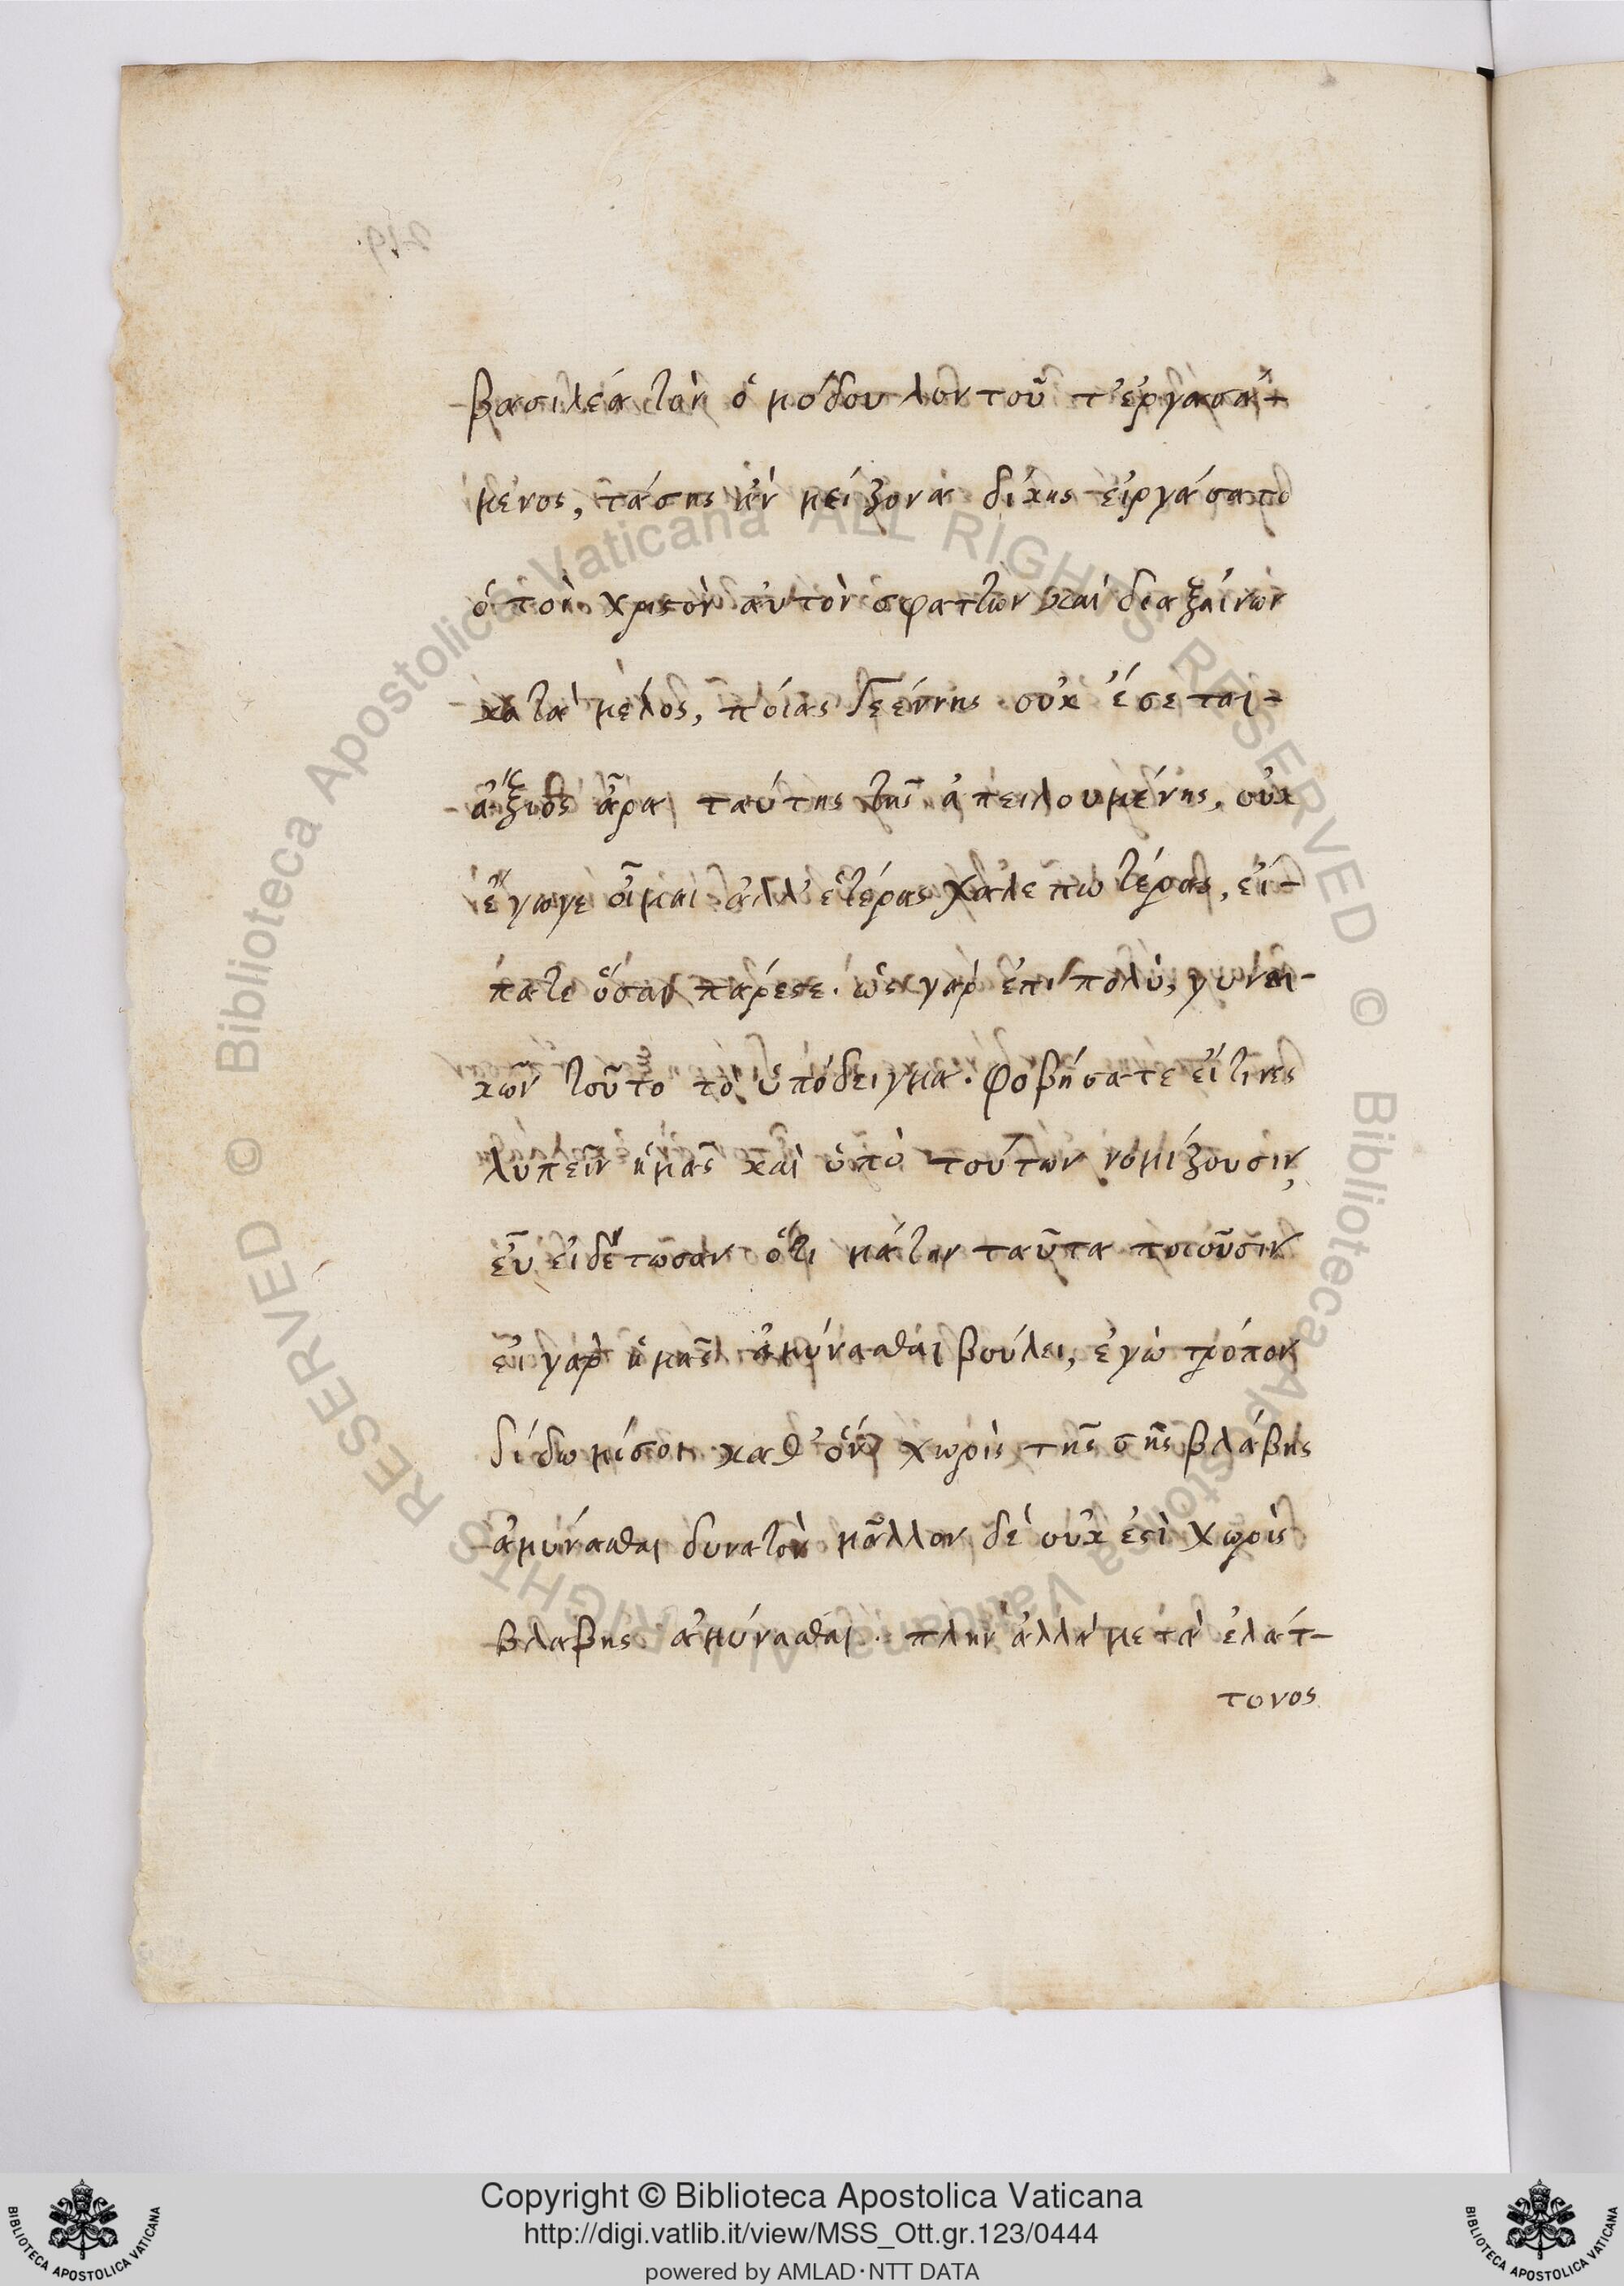 219.
βασιλέα τὸν ὁμόδουλον τοῦτ' ἐργασά-
μενος,
μείζονα δίκης εἰργάσατο
ὁ τὸν χριστὸν αὐτὸν σφαττων καὶ διαξαίνων
κατὰ μέλος, ποίας γεέννης οὐκ ἔσεται
ἄξιος ἄρα ταύτης τῆς ἀπειλουμένης, οὐκ
ἔγωγε οἶμαι ἀλλ' ἑτέρας χαλεπωτέρας, εἴ-
πατε ὅσαι πάρεστε. ὡς γὰρ ἐπὶ πολὺ, γυναι-
κῶν τοῦτο τὸ ὑπόδειγμα. φοβήσατε εἴ τινες
λυπεῖν ἡμᾶς καὶ ὑπὸ τούτων νομίζουσιν,
εὖ εἰδέτωσαν ὅτι μάτην ταῦτα ποιοῦσιν
εἰ γὰρ ἡμᾶς ἀμύνασθαι βούλει, ἐγὼ τρόπον
δίδωμί σοι καθ' ὃν χωρὶς τῆς σῆς βλάβης
ἀμύνασθαι δυνατὸν μᾶλλον δὲ οὐκ ἐστὶ χωρὶς
βλαβης ἀμύνασθαι. πλὴν ἀλλὰ μετὰ ἐλάτ-
τονος
Biblioteca Apostolica Vaticana ALL RIGHTS RESERVED ©
Biblioteca Apostolica Vaticana ALL RIGHTS RESERVED ©
Copyright © Biblioteca Apostolica Vaticana
http://digi.vatlib.it/view/MSS_Ott.gr.123/0444
powered by AMLAD·NTT DATA
BIBLIOTECA APOSTOLICA VATICANA
BIBLIOTECA APOSTOLICA VATICANA